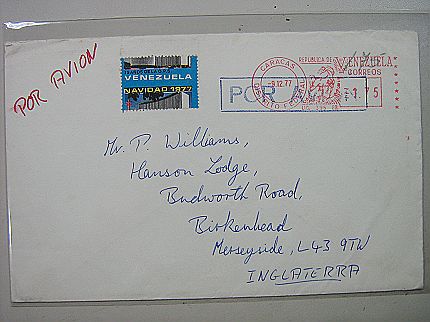 POR AVION
VENEZUELA
NAVIDAD 1977
CARACAS
-9.12.77
DISTRITO FEDERAL
REPUBLICA DE
VENEZUELA
CORREOS
POR
1.75
Mr. P. Williams,
Hanson Lodge,
Budworth Road,
Birkenhead
Merseyside, L43 9TW
INGLATERRA